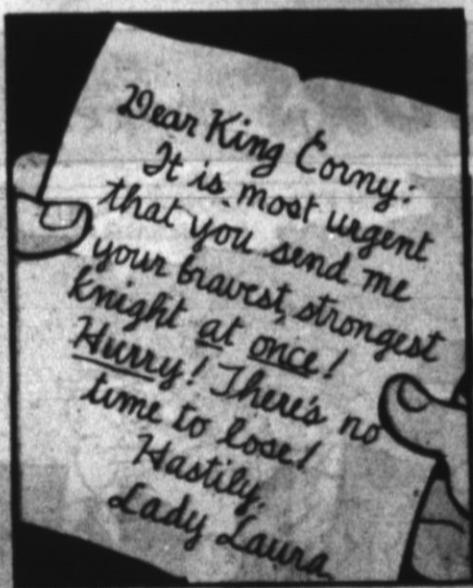 Dear King Corny:
It is most urgent
that you send me
your bravest, strongest
knight at once!
Hurry! There's no
time to lose!
Hastily,
Lady Laura